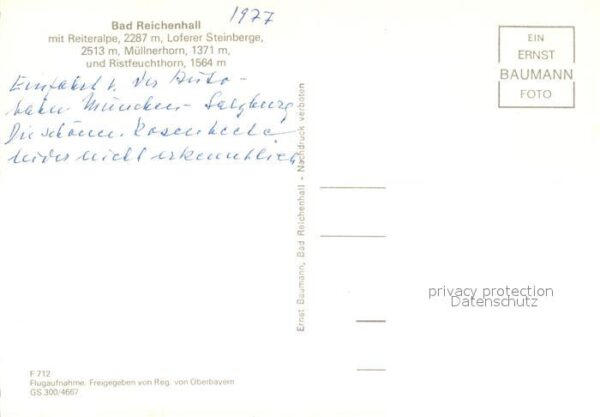 1977
Bad Reichenhall
mit Reiteralpe, 2287 m, Loferer Steinberge,
2513 m, Müllnerhorn, 1371 m,
und Ristfeuchthorn, 1564 m
Einfahrt v. der Auto-
bahn München - Salzburg
Die schönen Rosenbeete
leider nicht erkenntlich
EIN
ERNST
BAUMANN
FOTO
Ernst Baumann, Bad Reichenhall - Nachdruck verboten
privacy protection
Datenschutz
F 712
Flugaufnahme. Freigegeben von Reg. von Oberbayern
GS 300/4667